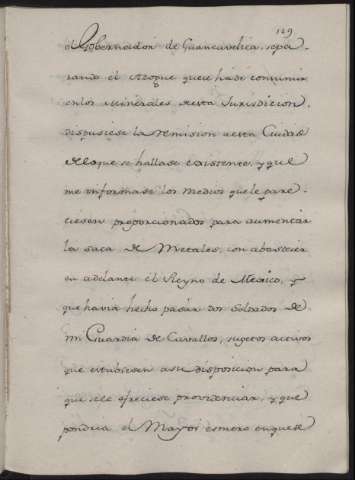 129
el Gobernador de Guancavelica, sepa-
rando el Azogue que se ha de consumir
en los minerales de esta Jurisdicion,
dispusiese la remision a esta Ciudad
de lo que se hallase existente, y que
me informase los medios que le pare-
ciesen proporcionados para aumentar
la saca de Metales, con abastecer
en adelante el Reyno de Mexico, y
que havia hecho pasar dos Soldados de
mi Guardia de Cavallos, sugetos activos
que estubiesen a su disposicion para
que se le ofreciese providenciar, y que
pondria el Mayor esmero en que se